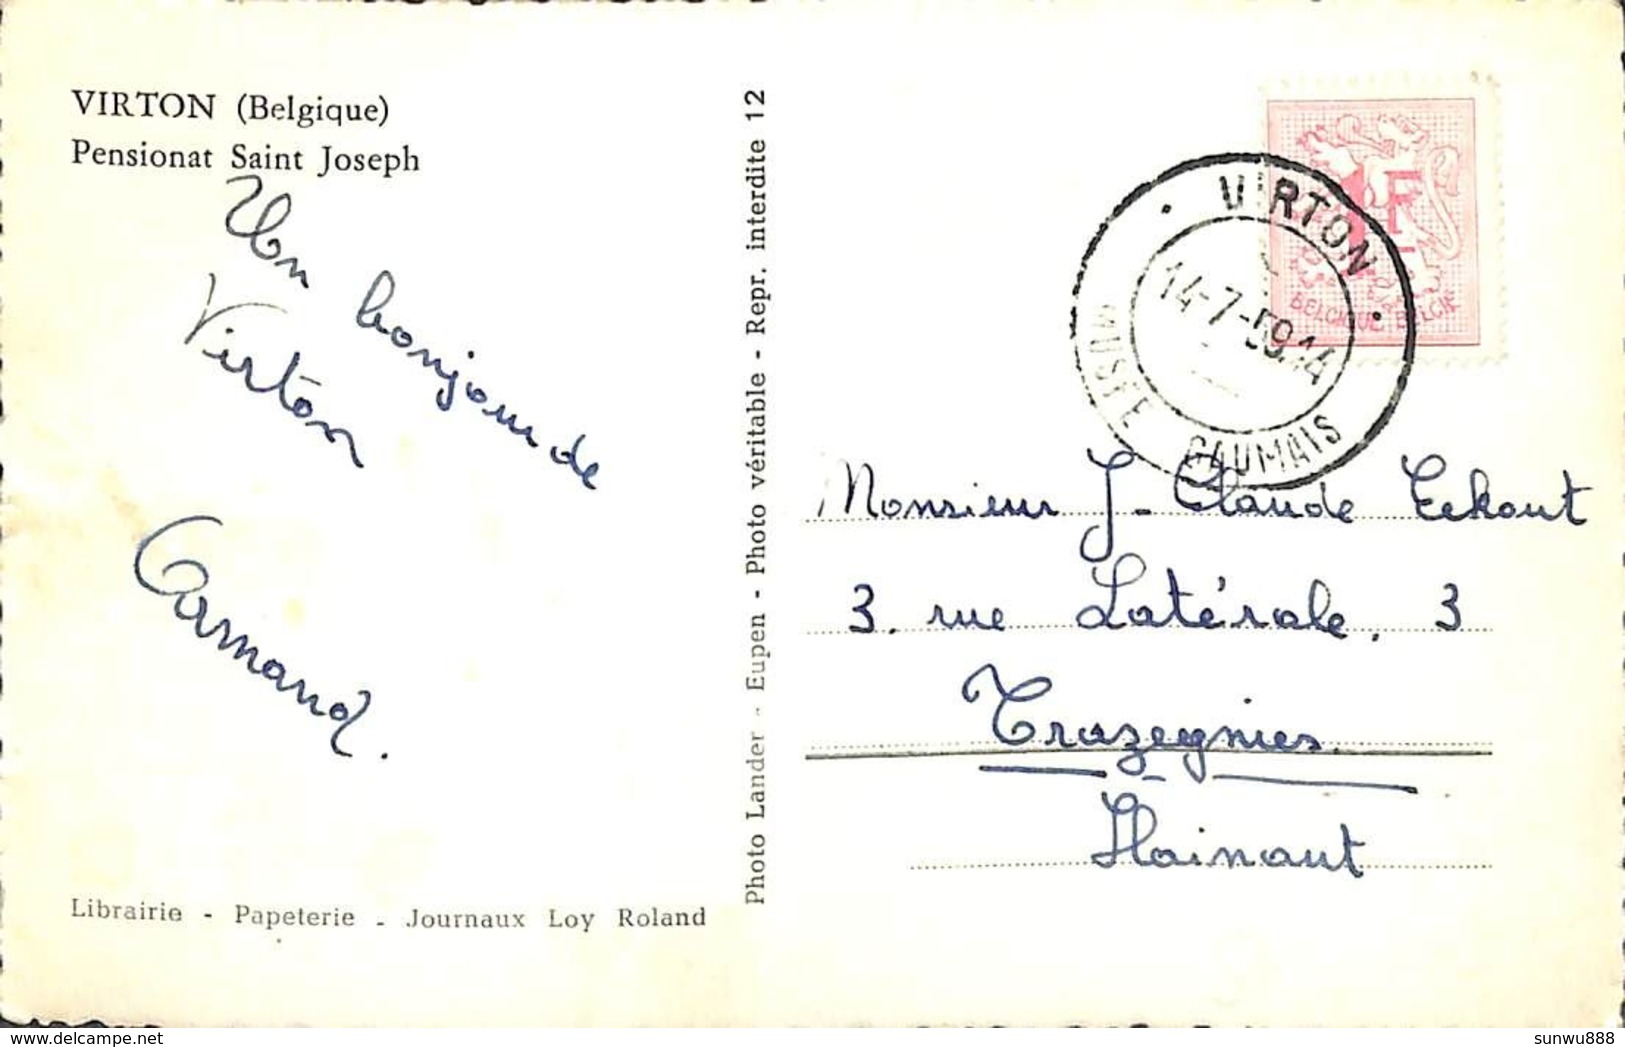 VIRTON (Belgique)
Pensionat Saint Joseph
Un bonjour de
Virton
Armand.
Librairie - Papeterie - Journaux Loy Roland
Photo Lander - Eupen - Photo véritable - Repr. interdite 12
1F
BELGIQUE BELGIË
VIRTON
14-7-59.14
MUSEE GAUMAIS
Monsieur J-Claude Eckout
3. rue Latérale. 3
Trazegnies
Hainaut
sunwu888